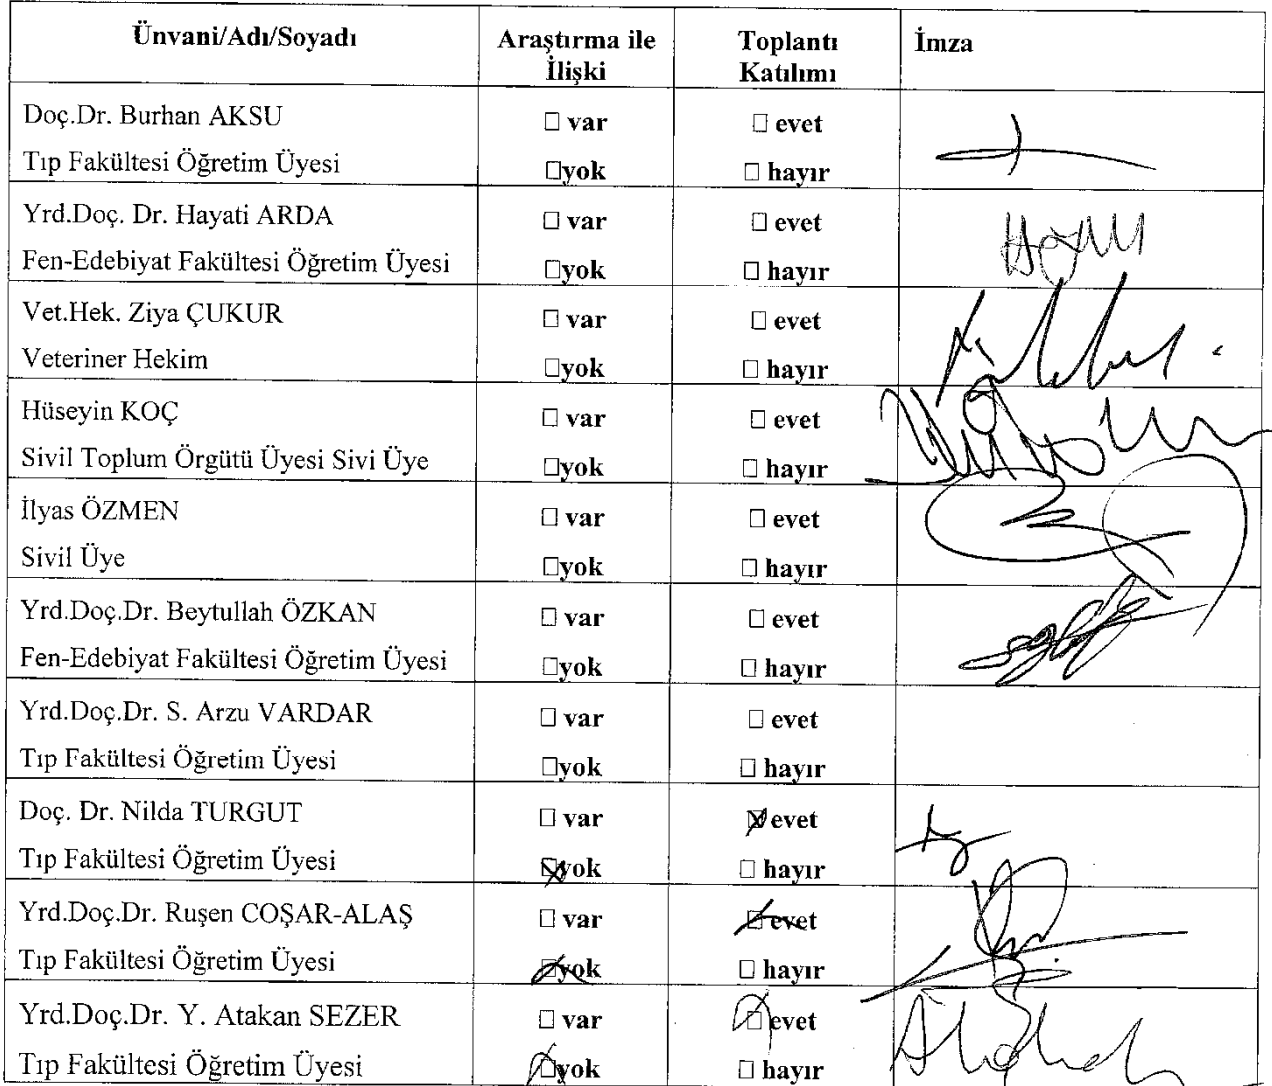 Ünvani/Adı/Soyadı
Araştırma ile İlişki
Toplantı Katılımı
İmza
Doç.Dr. Burhan AKSU
Tıp Fakültesi Öğretim Üyesi
□ var
□yok
□ evet
□ hayır
Yrd.Doç. Dr. Hayati ARDA
Fen-Edebiyat Fakültesi Öğretim Üyesi
□ var
□yok
□ evet
□ hayır
Vet.Hek. Ziya ÇUKUR
Veteriner Hekim
□ var
□yok
□ evet
□ hayır
Hüseyin KOÇ
Sivil Toplum Örgütü Üyesi Sivi Üye
□ var
□yok
□ evet
□ hayır
İlyas ÖZMEN
Sivil Üye
□ var
□yok
□ evet
□ hayır
Yrd.Doç.Dr. Beytullah ÖZKAN
Fen-Edebiyat Fakültesi Öğretim Üyesi
□ var
□yok
□ evet
□ hayır
Yrd.Doç.Dr. S. Arzu VARDAR
Tıp Fakültesi Öğretim Üyesi
□ var
□yok
□ evet
□ hayır
Doç. Dr. Nilda TURGUT
Tıp Fakültesi Öğretim Üyesi
□ var
☒yok
☒ evet
□ hayır
Yrd.Doç.Dr. Ruşen COŞAR-ALAŞ
Tıp Fakültesi Öğretim Üyesi
□ var
☒yok
☒ evet
□ hayır
Yrd.Doç.Dr. Y. Atakan SEZER
Tıp Fakültesi Öğretim Üyesi
□ var
☒yok
☒evet
□ hayır